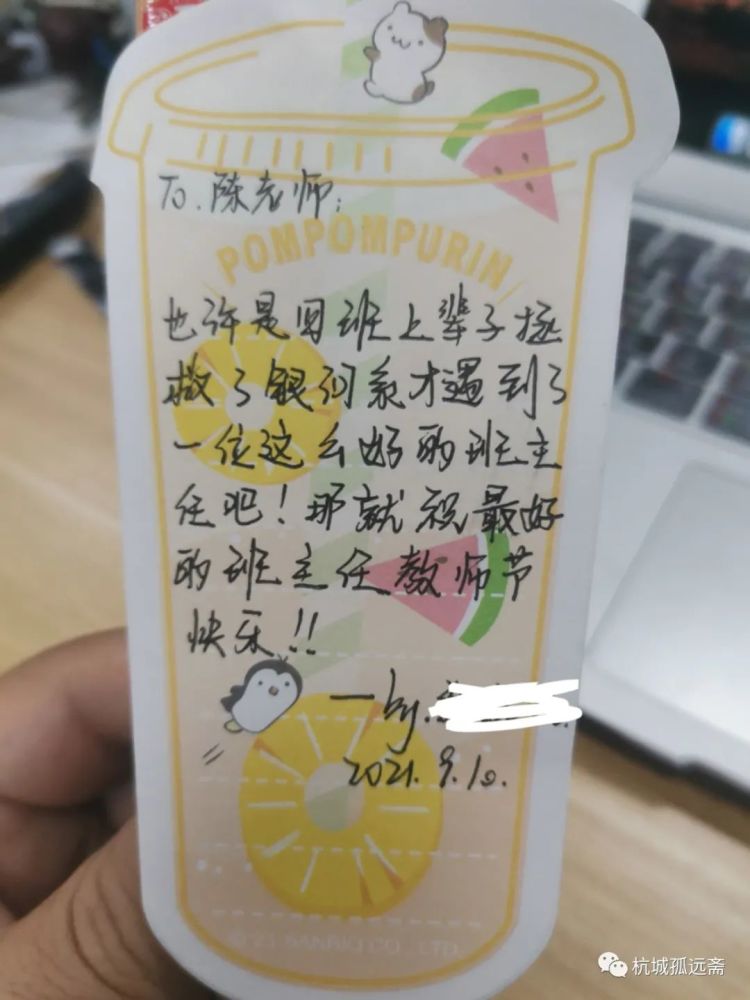 To. 陈老师:
POMPOMPURIN
也许是因班上辈子拯
救了银河系才遇到了
一位这么好的班主
任吧！那就祝最好
的班主任教师节
快乐!!
—by.
2021.9.10.
©'21 SANRIO CO., LTD.
杭城孤远斋